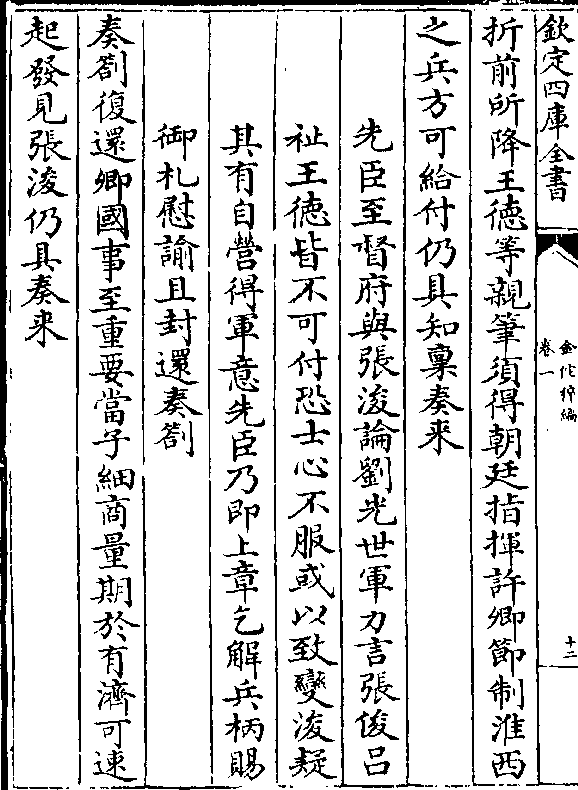 欽定四庫全書
金佗稡編
卷一
十二
折前所降王徳等親筆須得朝廷指揮許卿節制淮西
之兵方可給付仍具知稟奏来
先臣至督府與張浚論劉光世軍力言張俊吕
祉王徳皆不可付恐士心不服或以致變浚疑
其有自營得軍意先臣乃即上章乞解兵柄賜
御札慰諭且封還奏劄
奏劄復還卿國事至重要當子細商量期於有濟可速
起發見張浚仍具奏来